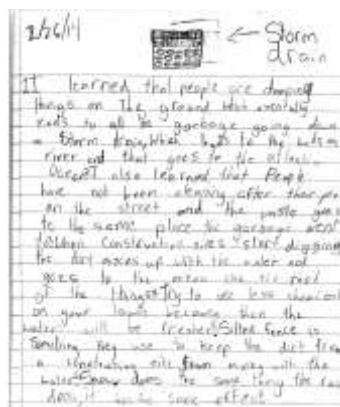 2/26/14
Storm
drain
I learned that people are dumping
things on The ground that eventally
leads to all the garbage going down
a Storm drain, Which leads to the
river and that goes to the atlantic
Ocean. I also learned that People
have not been cleaning after their
on the street and the waste goes
to the same place the garbage went
to. When Construction sites start digging
the dirt mixes up with the water and
goes to the ocean like the rest
of the things. Try to use less chemicals
on your lawns because then the
water will be fresher. Silted fence is
something they use to keep the dirt from
a construction site from mixing with the
water. Snow does the same thing the rain
does, it has the same effect